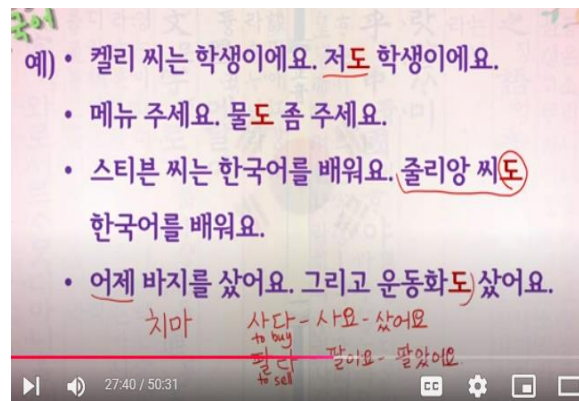 국어
예) • 켈리 씨는 학생이에요. 저도 학생이에요.
• 메뉴 주세요. 물도 좀 주세요.
• 스티븐 씨는 한국어를 배워요. 줄리앙 씨도
한국어를 배워요.
• 어제 바지를 샀어요. 그리고 운동화도 샀어요.
치마 사다 - 사요 - 샀어요
to buy
팔다 팔아요 - 팔았어요.
to sell
27:40 / 50:31 CC